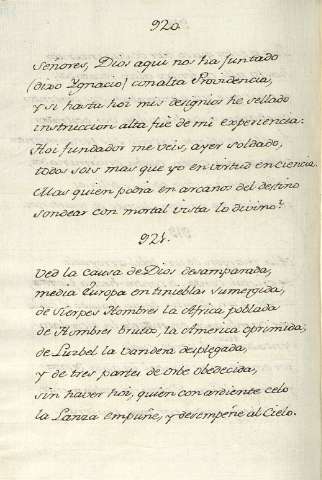 920.
Señores, Dios aqui nos ha juntado
(dixo Ygnacio) con alta Providencia,
y si hasta hoi mis designios he sellado
instruccion alta fuè de mi experiencia:
Hoi fundador me veis, ayer soldado,
todos sois mas que yo en virtud en ciencia.
Mas quien podrà en arcanos del destino
sondear con mortal vista lo divino?
921.
Ved la causa de Dios desamparada,
media Europa en tinieblas sumergida,
de Sierpes Hombres la Africa poblada
de Hombres brutos, la America oprimida,
de Luzbel la vandera desplegada,
y de tres partes de Orbe obedecida,
sin haver hoi, quien con ardiente celo
la Lanza empuñe, y desempeñe al Cielo.